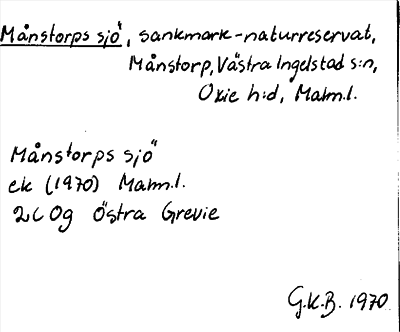 Månstorps sjö, sankmark-naturreservat,
Månstorp, Västra Ingelstad s:n,
Oxie h:d, Malm.l.
Månstorps sjö
ek (1970) Malm.l.
2C 0g Östra Grevie
G.K.B. 1970